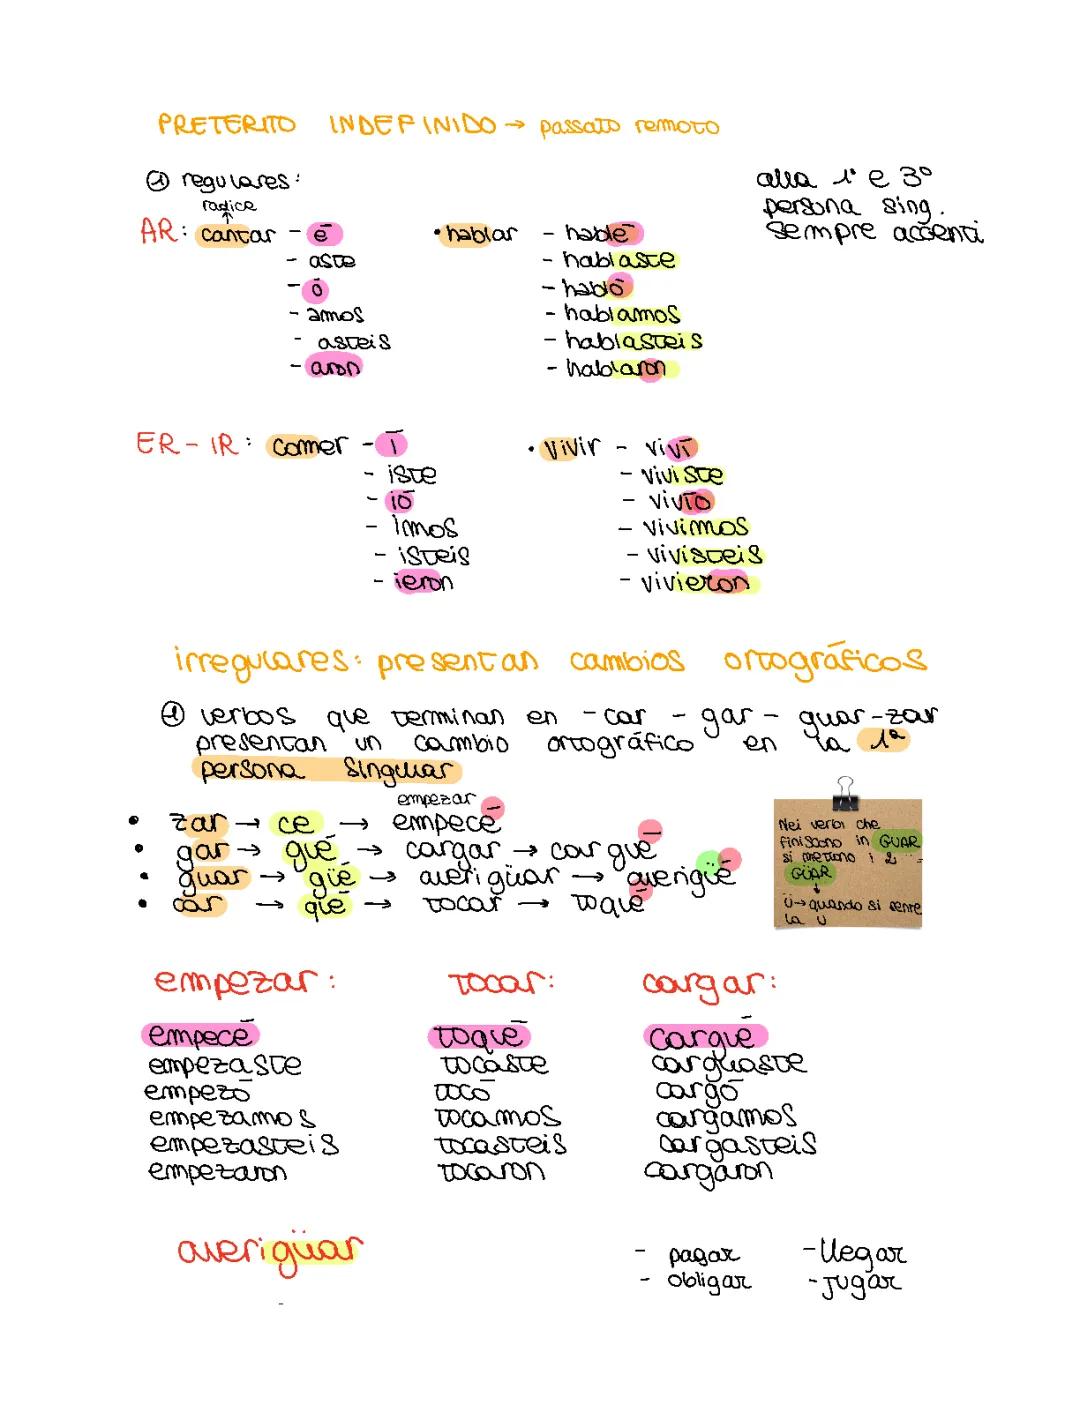 PRETERITO INDEFINIDO → passato remoto
① regulares:
radice
AR: cantar - ē
- aste
- ō
- amos
- asteis
- aron
• hablar - hablē
- hablaste
- hablō
- hablamos
- hablasteis
- hablaron
alla 1ª e 3ª
persona sing.
sempre accenti
ER - IR: comer - ī
- iste
- iō
- imos
- isteis
- ieron
• vivir - vivī
- viviste
- vivīo
- vivimos
- vivisteis
- vivieron
irregulares: presentan cambios ortográficos
① verbos que terminan en - car - gar - guar - zar
presentan un cambio ortográfico en la 1ª
persona singular
empezar
• zar → ce → empecē
• gar → guē → cargar → carguē
• guar → güē → averigüar → averigüē
• car → quē → tocar → toquē
Nei verbi che
finiscono in GUAR
si mettono i 2 ..
GÜAR
↓
Ü → quando si sente
la U
empezar:
empecē
empezaste
empezō
empezamos
empezasteis
empezaron
tocar:
toquē
tocaste
tocō
tocamos
tocasteis
tocaron
cargar:
carguē
carguaste
cargō
cargamos
cargasteis
cargaron
averigüar
- pagar
- obligar
- llegar
- jugar